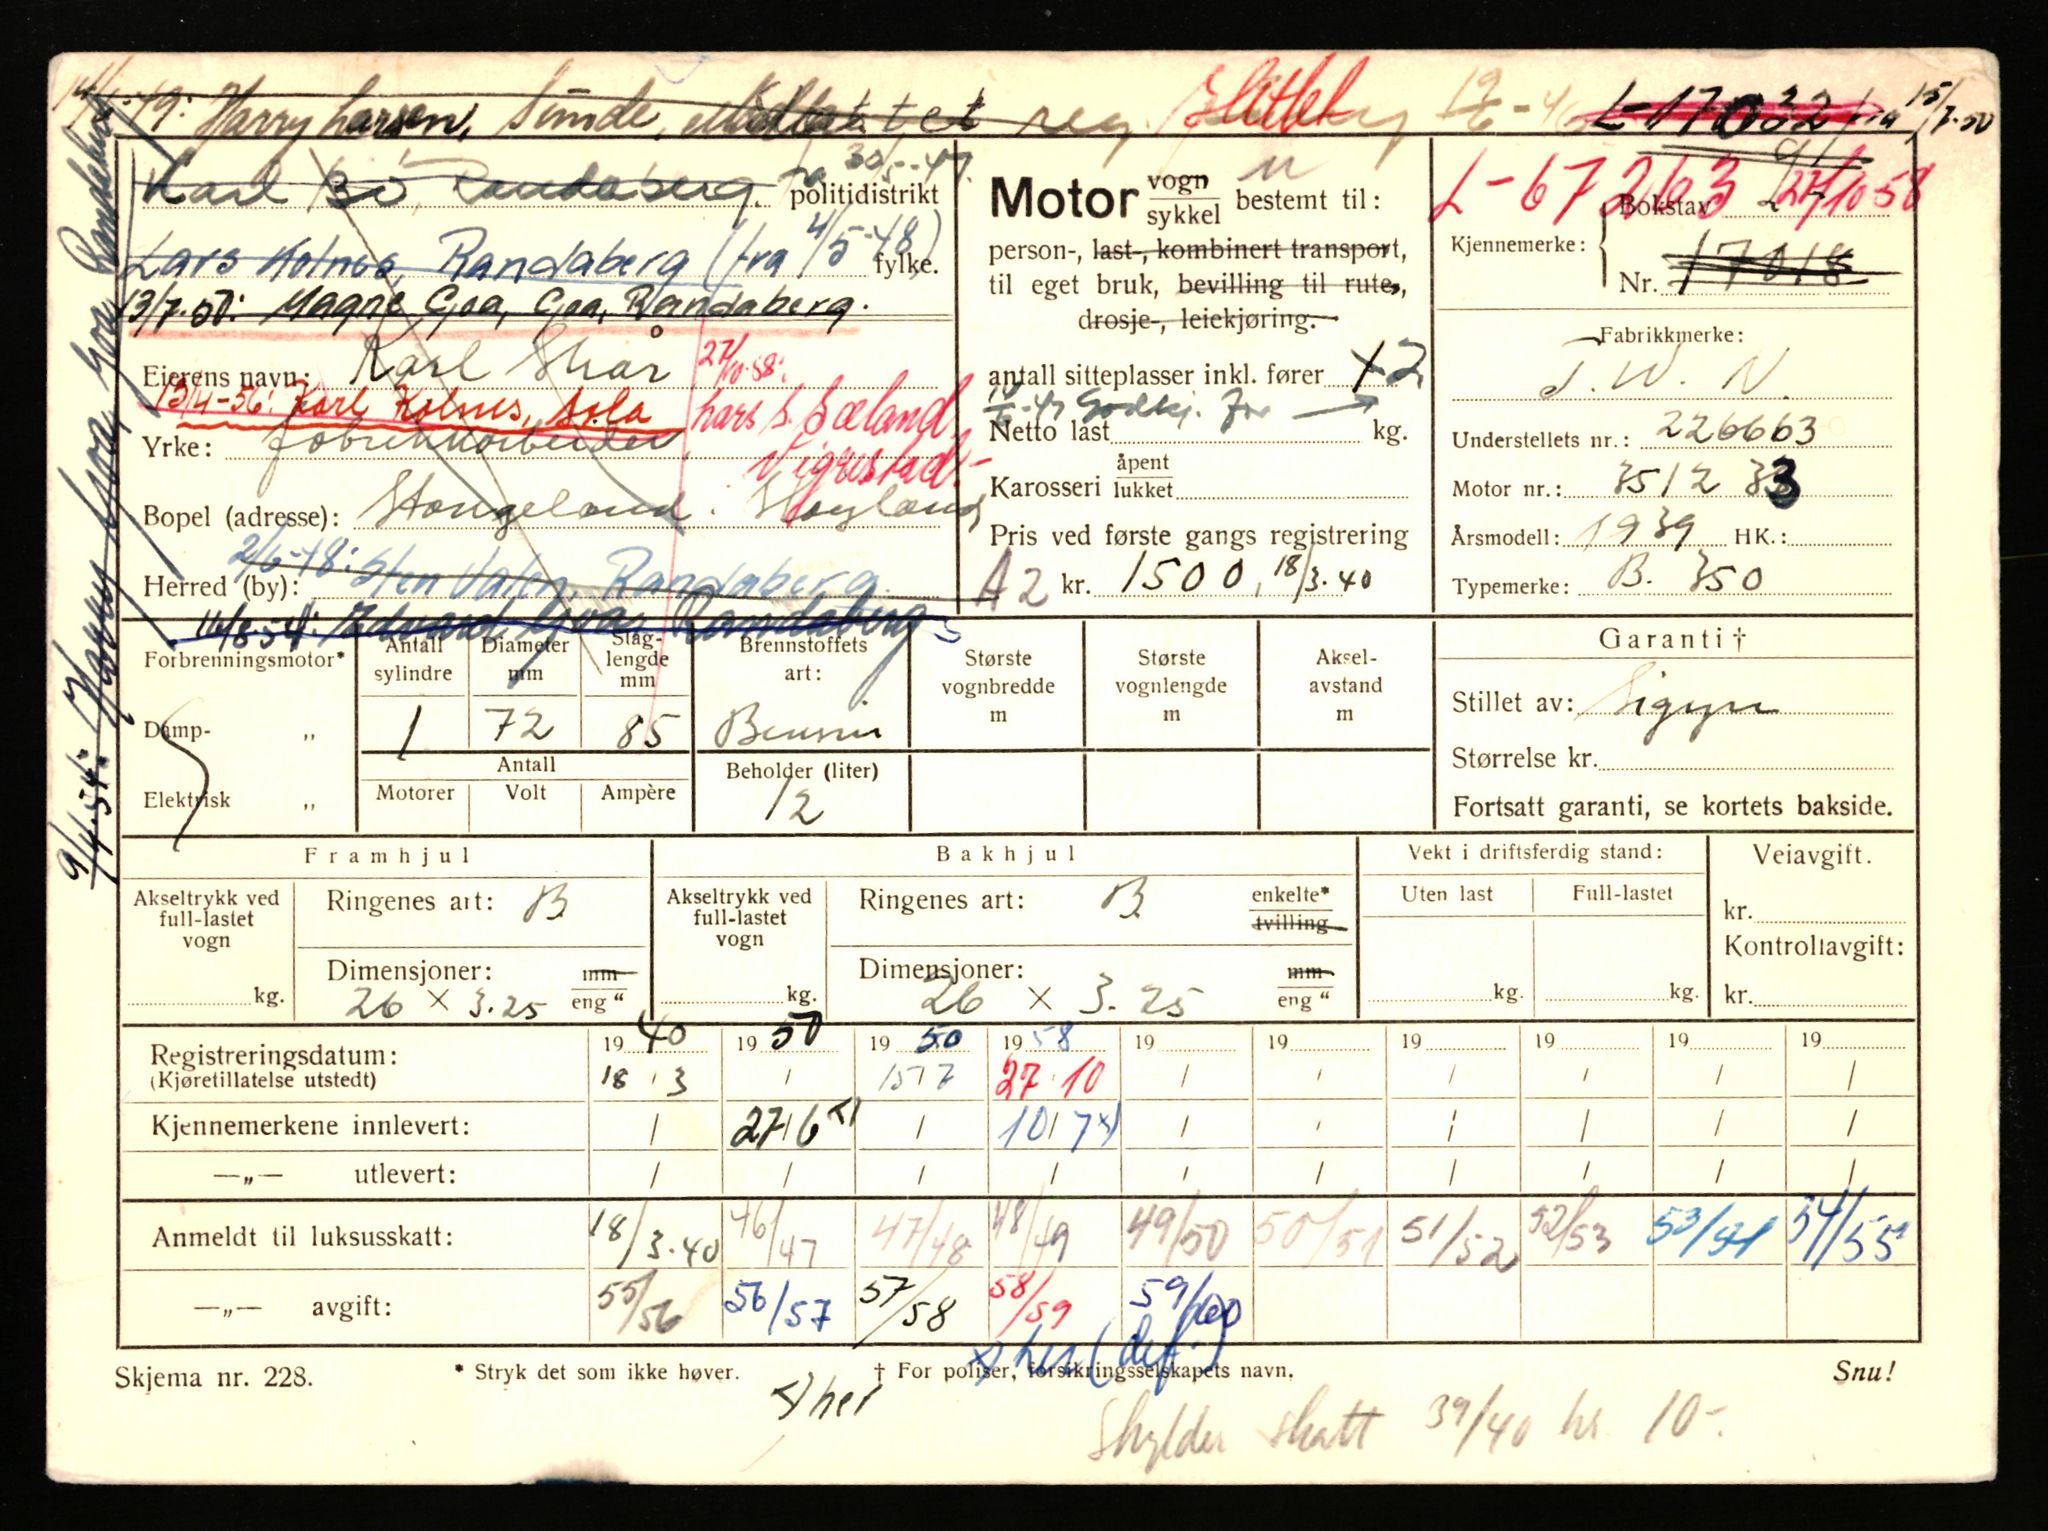 14/1-49: Harry Larsen, Sunde, reg. 12/6-46 L-17032 fra 15/7-50
Karl Bø, Randaberg. fra 30/5-47. politidistrikt
Lars Holnes, Randaberg (fra 4/5-48) fylke.
13/7-50: Magne Goa, Goa, Randaberg.
Eierens navn: Karl Skår
27/10-58:
13/4-56: Karl Kolnes, Sola
Lars S. Sæland,
Yrke: fabrikkarbeider
Vigrestad
Bopel (adresse): Stangeland. Høyland
2/6-48: Sten Dalen, Randaberg.
Herred (by):
16/8-54: Edvard Goa, Randaberg
9/4-54: Harry Goa, Goa, Randaberg
Motor vogn
sykkel bestemt til:
person-, last-, kombinert transport,
til eget bruk, bevilling til rute-,
drosje-, leiekjøring.
antall sitteplasser inkl. fører 1 2
10/6-47 Godkj. for →
Netto last kg.
Karosseri åpent
lukket
Pris ved første gangs registrering
A2 kr. 1500, 18/3.40
L-67263 27/10-58
Bokstav L
Kjennemerke:
Nr. 17018
Fabrikkmerke:
T. W. N.
Understellets nr.: 226663
Motor nr.: 3512 33
Årsmodell: 1939 HK.:
Typemerke: B. 350
Forbrenningsmotor*
Damp- „
Elektrisk „
Antall sylindre
Diameter mm
Slag-lengde mm
Brennstoffets art:
1 72 85 Bensin
Antall
Motorer Volt Ampère
Beholder (liter)
12
Største vognbredde m
Største vognlengde m
Aksel-avstand m
Garanti †
Stillet av: Sigyn
Størrelse kr.
Fortsatt garanti, se kortets bakside.
Framhjul
Akseltrykk ved full-lastet vogn
kg.
Ringenes art: B
Dimensjoner: mm
26 × 3.25 eng "
Bakhjul
Akseltrykk ved full-lastet vogn
kg.
Ringenes art: B enkelte*
tvilling
Dimensjoner: mm
26 × 3.25 eng "
Vekt i driftsferdig stand:
Uten last Full-lastet
kg. kg.
Veiavgift.
kr.
Kontrollavgift:
kr.
Registreringsdatum: 19 40 19 50 19 50 19 58 19 19 19 19 19 19
(Kjøretillatelse utstedt) 18 / 3 / 15 / 7 27 / 10 / / / / / /
Kjennemerkene innlevert: / 27 / 6 x) / 10 / 7 x) / / / / / /
—„— utlevert: / / / / / / / / / /
Anmeldt til luksusskatt: 18/3.40 46/47 47/48 48/49 49/50 50/51 51/52 52/53 53/54 54/55
—„— avgift: 55/56 56/57 57/58 58/59 59/60
x) her (def.)
Skjema nr. 228. * Stryk det som ikke høver. † For poliser, forsikringsselskapets navn. Snu!
x) her
Skylder skatt 39/40 kr. 10-.